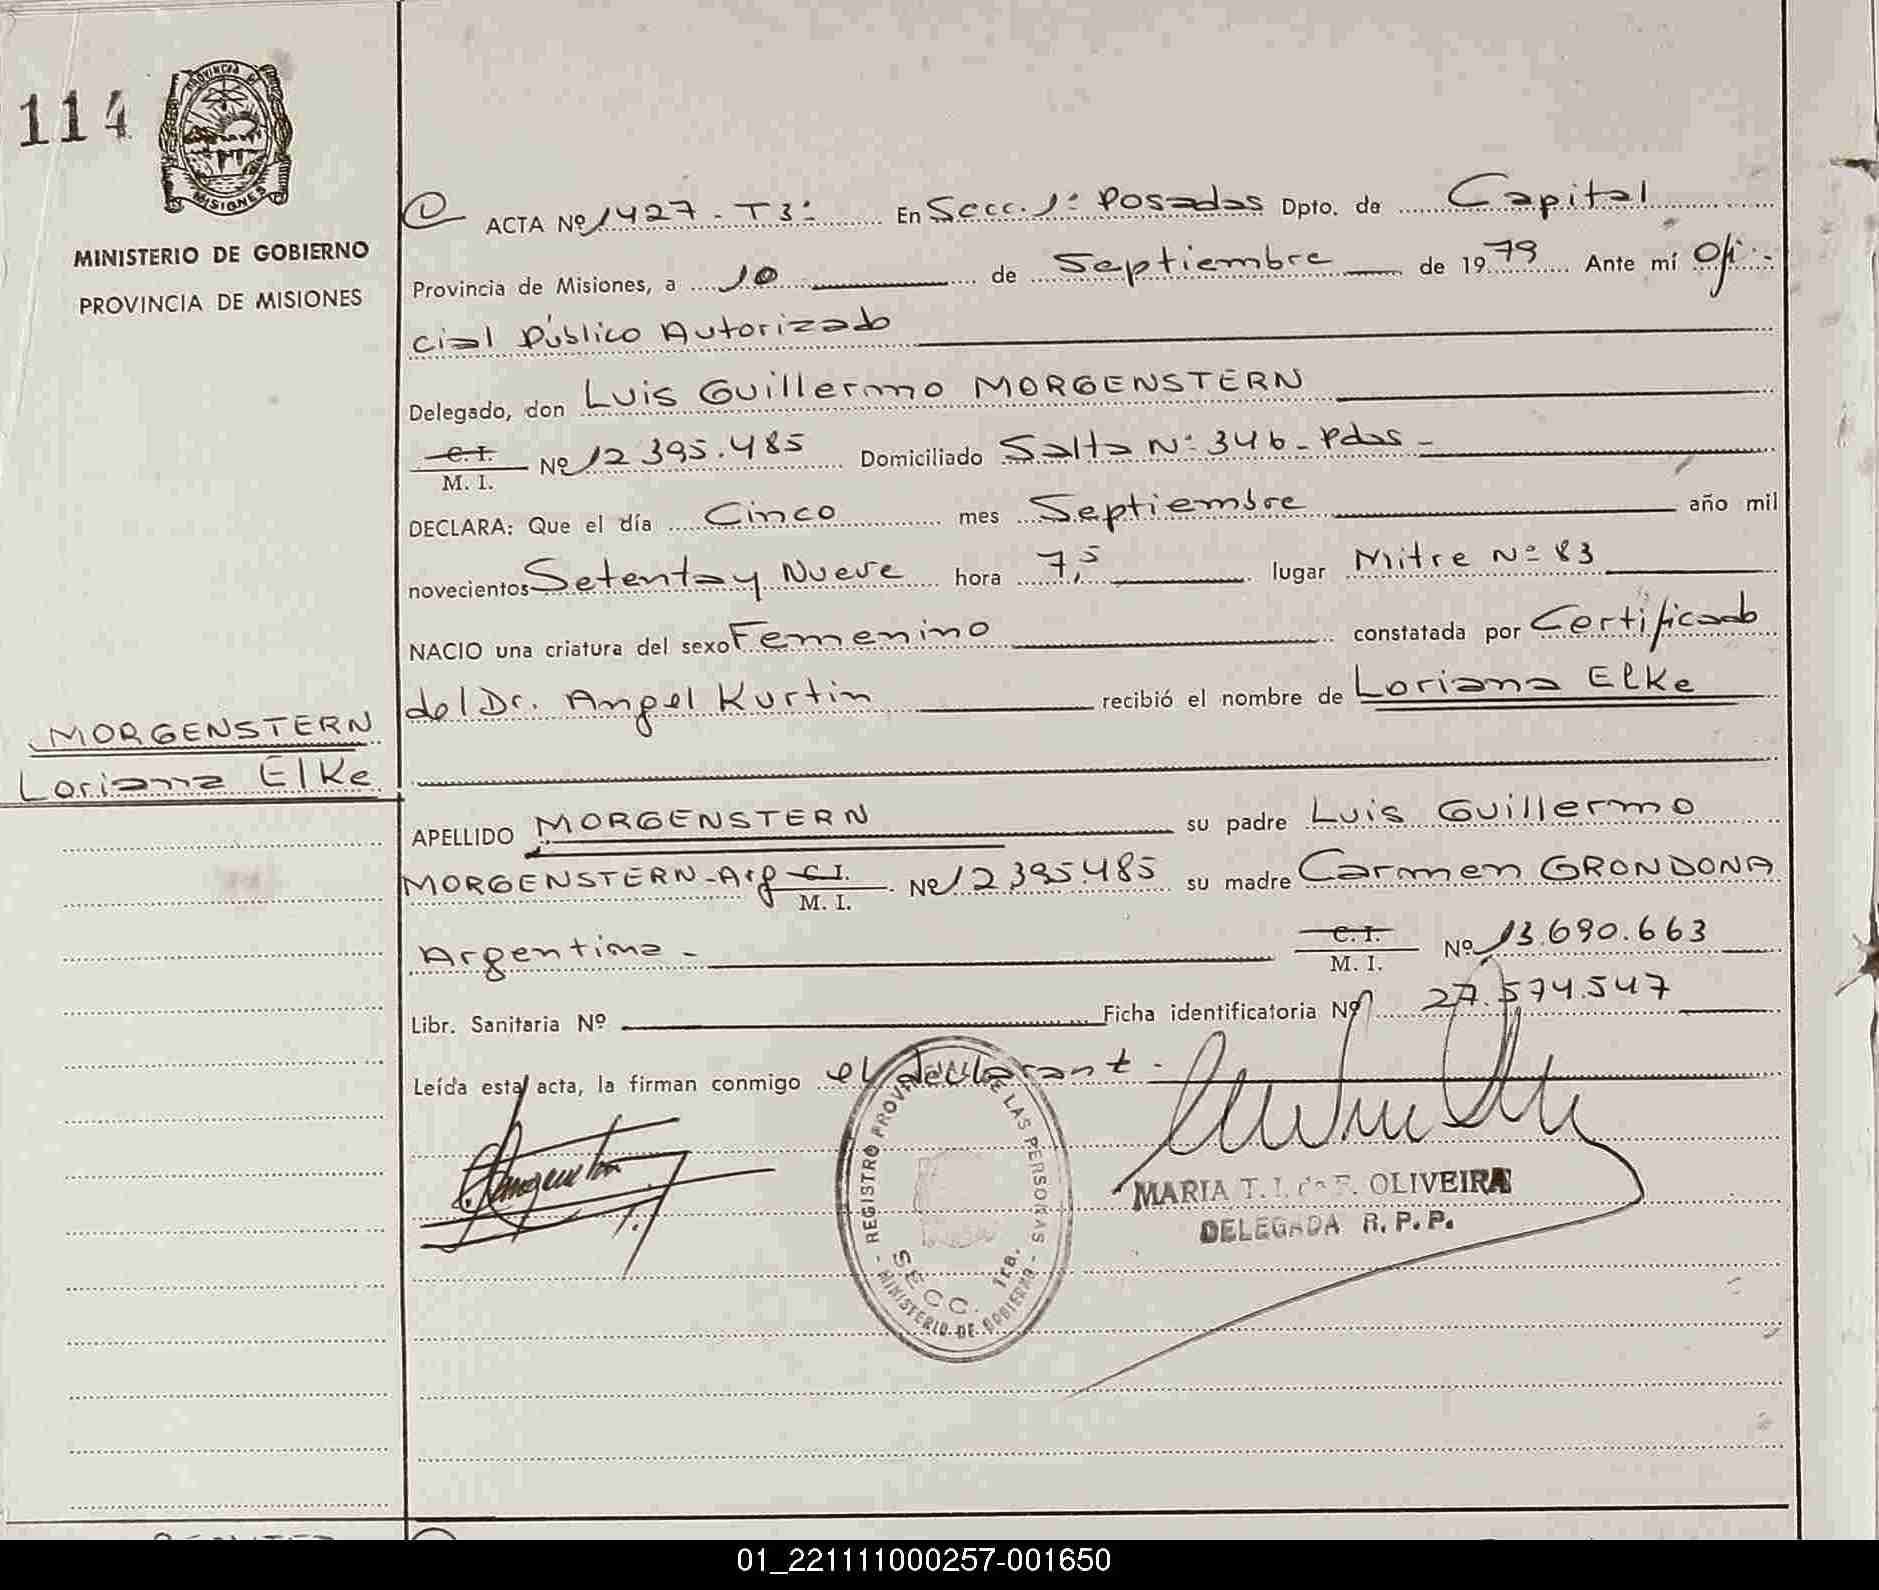 114
PROVINCIA DE
MISIONES
MINISTERIO DE GOBIERNO
PROVINCIA DE MISIONES
MORGENSTERN
Loriana Elke
ACTA Nº 1427 - T3º En Secc. 1ª Posadas Dpto. de Capital
Provincia de Misiones, a 10 de Septiembre de 1979 Ante mí Ofi-
cial Público Autorizado
Delegado, don Luis Guillermo MORGENSTERN
C. I.
M. I. Nº 12395.485 Domiciliado Salta Nº 346 - Pdas -
DECLARA: Que el día Cinco mes Septiembre año mil
novecientos Setenta y Nueve hora 7,5 lugar Mitre Nº 83
NACIO una criatura del sexo Femenino constatada por Certificado
del Dr. Angel Kurtin recibió el nombre de Loriana Elke
APELLIDO MORGENSTERN su padre Luis Guillermo
MORGENSTERN - Arg C. I. M. I. Nº 12395.485 su madre Carmen GRONDONA
Argentina - C. I. M. I. Nº 13.690.663
Libr. Sanitaria Nº Ficha identificatoria Nº 27.574.547
Leída esta acta, la firman conmigo el declarant -
REGISTRO DE LAS PERSONAS
SECC. 1ra.
- MINISTERIO DE GOBIERNO -
MARIA T. I. de F. OLIVEIRA
DELEGADA R. P. P.
01_221111000257-001650